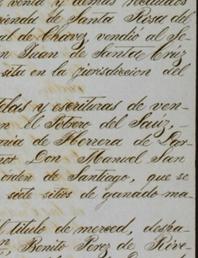 venta y demas recaudos
cienda de Santa Rosa del
al de Chavez, vendio al Se-
n Juan de Santa Cruz
sita en la jurisdiccion del
tulas y escrituras de ven-
n el Potrero del Sauz,
nia de Herrera de Don
nor Don Manuel San
orden de Santiago, que se
siete sitios de ganado ma-
l titulo de merced, despa-
n Benito Perez de Rive-